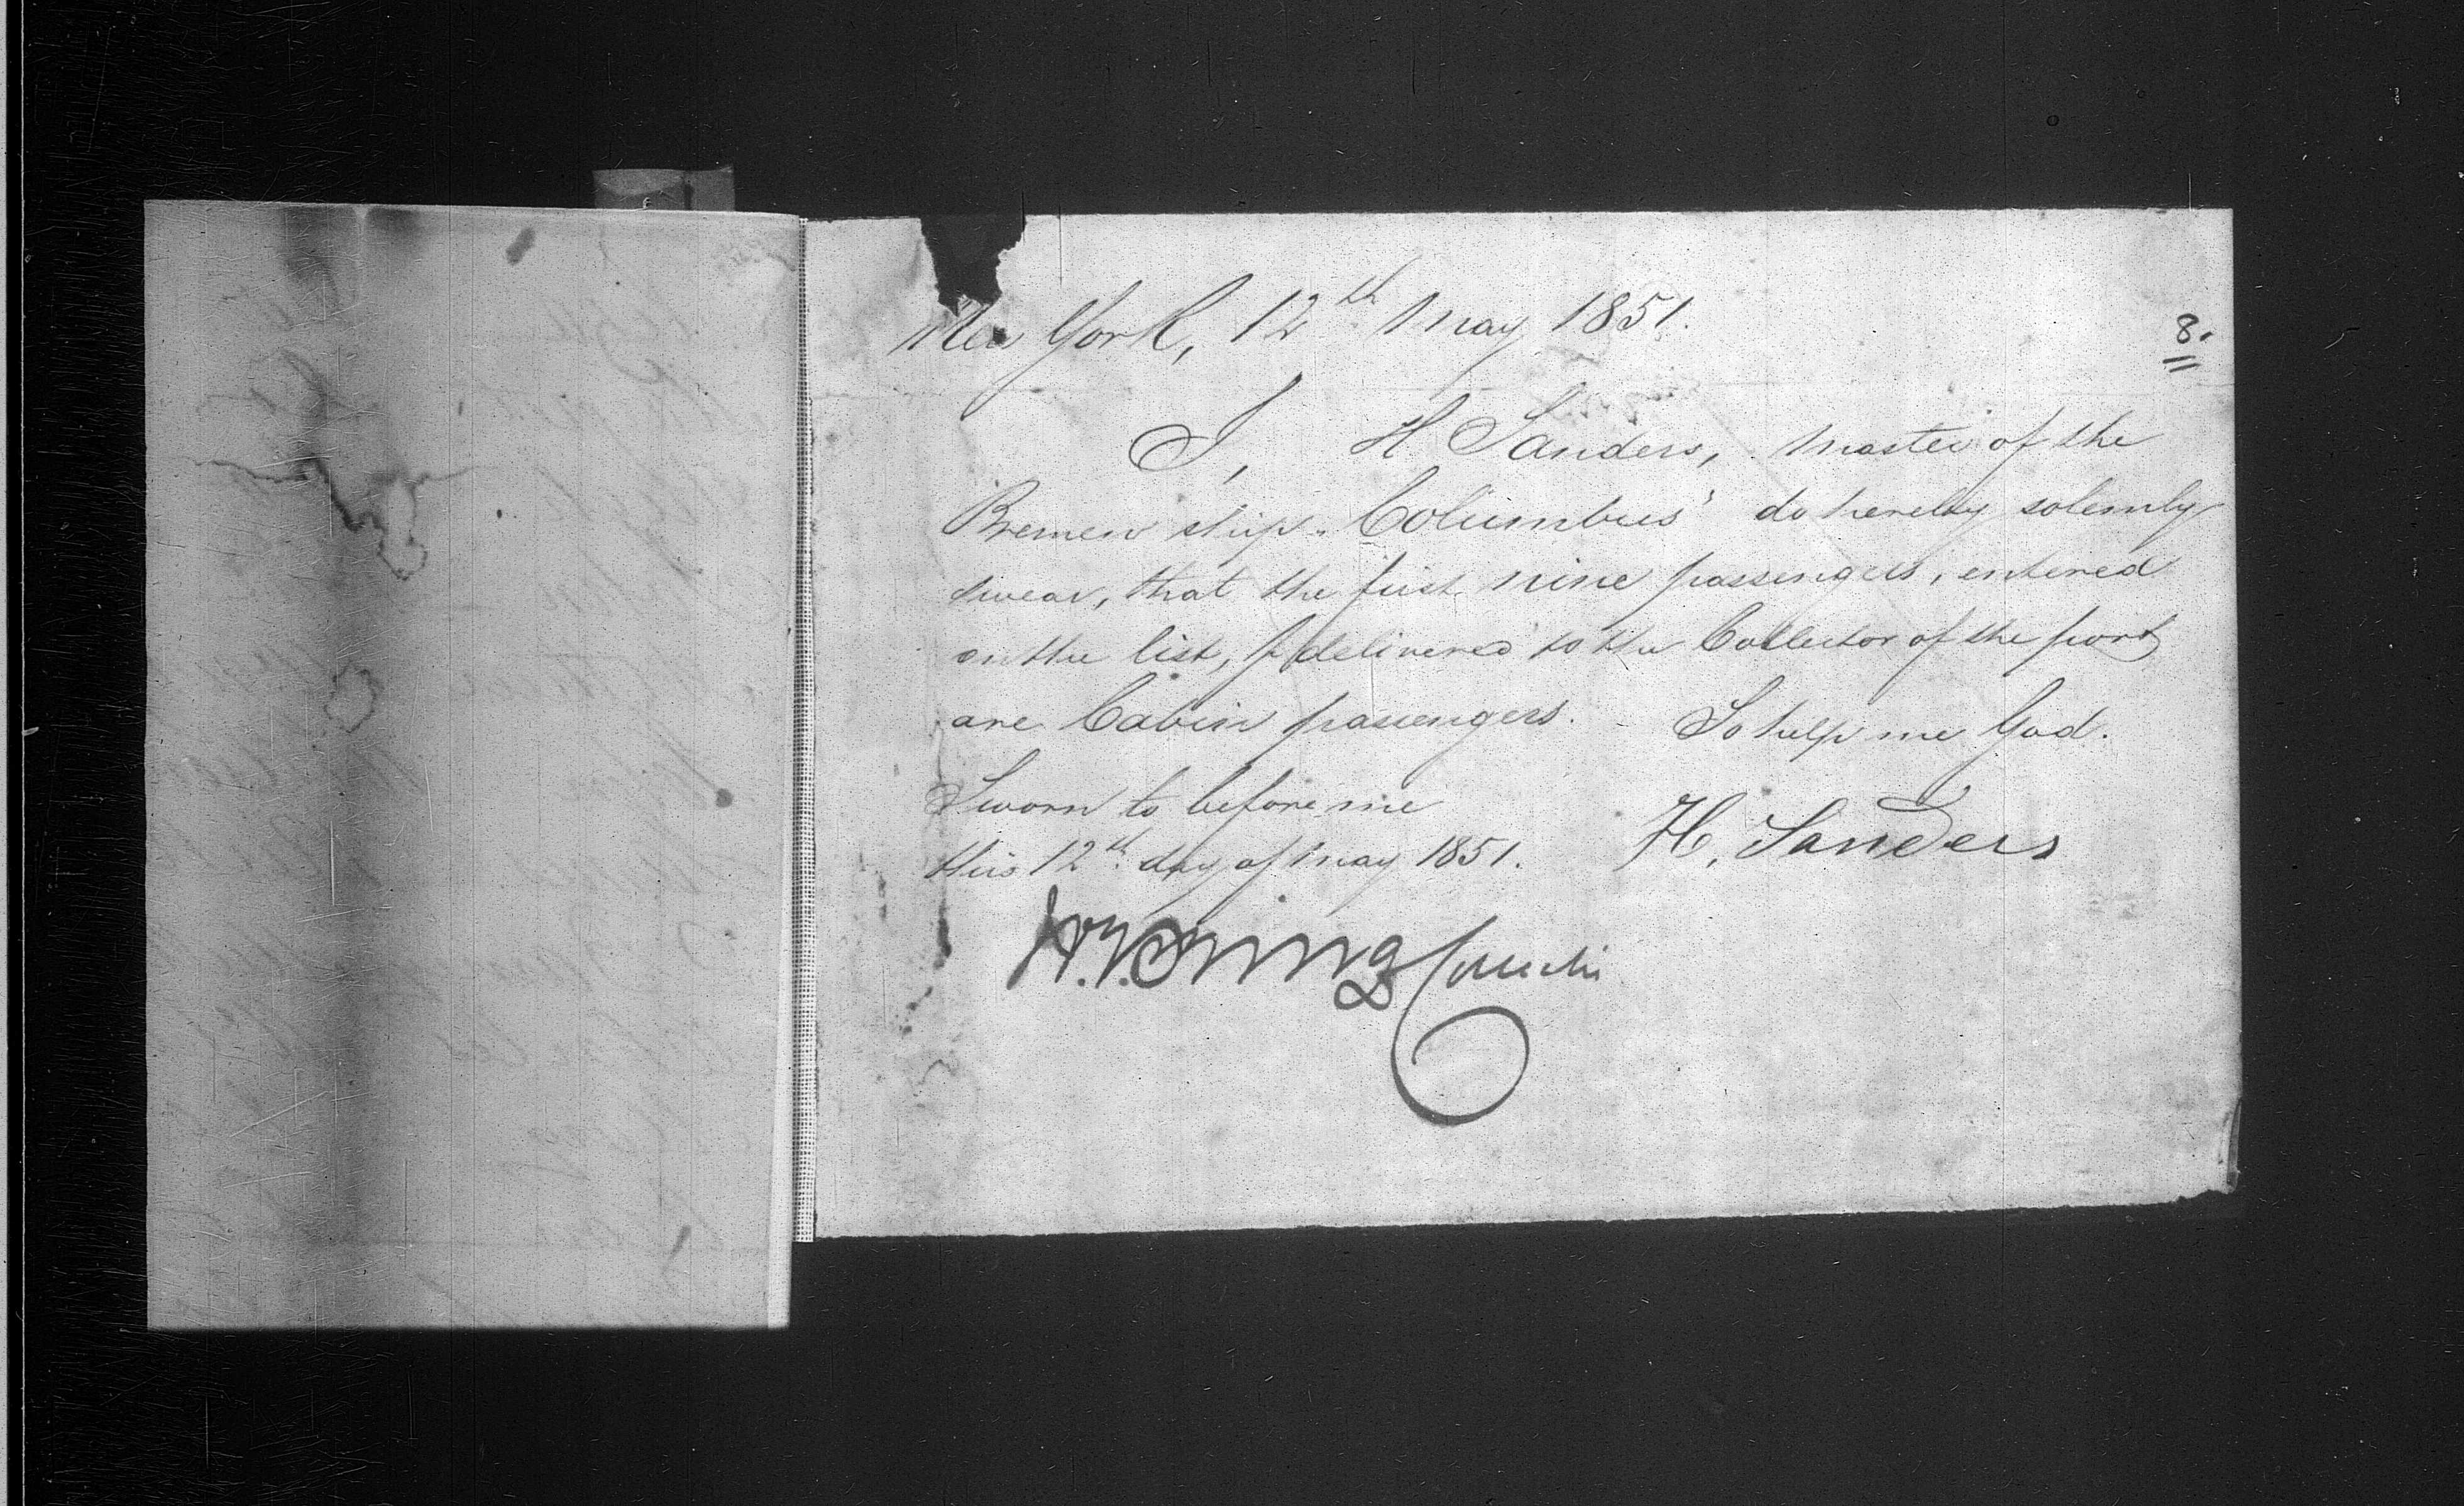 New York, 12th May 1851.
8.
I, H. Sanders, master of the
Bremen ship "Columbus" do hereby solemnly
swear, that the first nine passengers, entered
on the list, I delivered to the Collector of the port
are Cabin passengers. So help me God.
Sworn to before me
this 12th day of May 1851.
H. Sanders